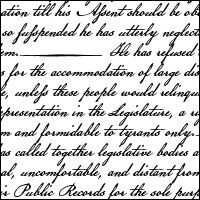 ation till his Assent should be ob
so suspended he has utterly neglect
em. He has refused
s for the accommodation of large dis
e, unless these people would relinqu
epresentation in the Legislature, a ri
m and formidable to tyrants only.
as called together legislative bodies a
al, uncomfortable, and distant from
ir Public Records for the sole purp